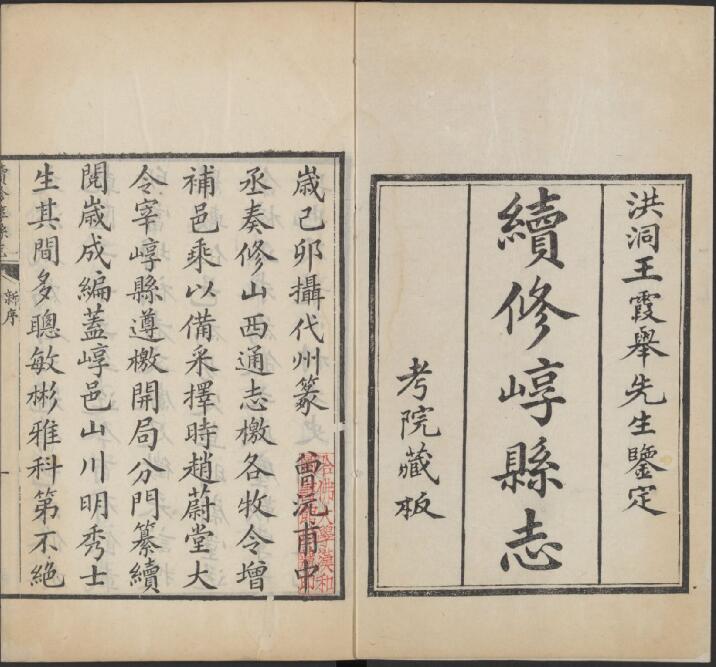 洪洞王霞舉先生鑒定
續修崞縣志
考院藏板
歲己卯攝代州篆曾沅甫中
丞奏修山西通志檄各牧令增
補邑乘以備采擇時趙蔚堂大
令宰崞縣遵檄開局分門纂續
閱歲成編蓋崞邑山川明秀士
生其間多聰敏彬雅科第不絕
續修崞縣志
新序
一
哈佛大學漢和